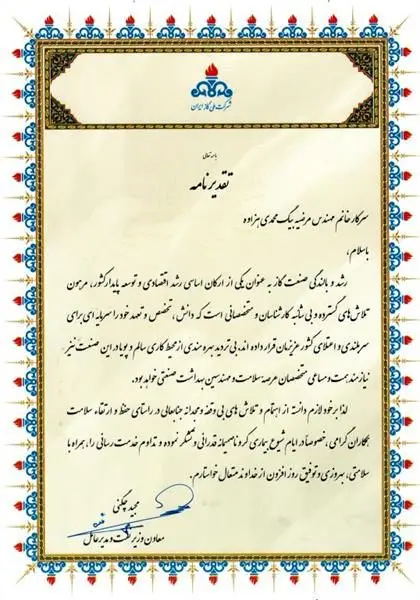 شرکت ملی گاز ایران
باسمه تعالی
تقدیرنامه
سرکار خانم مهندس مرضیه بیگ محمدی هزاده
باسلام،
رشد و بالندگی صنعت گاز به عنوان یکی از ارکان اساسی رشد اقتصادی و توسعه پایدار کشور، مرهون
تلاش‌های گسترده و بی شائبه کارشناسان و متخصصانی است که دانش، تخصص و تعهد خود را سرمایه ای برای
سربلندی و اعتلای کشور عزیزمان قرار داده اند، بی تردید بهره مندی از محیط کاری سالم و پویا در این صنعت نیز
نیازمند همت و مساعی متخصصان عرصه سلامت و مهندسین بهداشت صنعتی خواهد بود.
لذا بر خود لازم دانسته از اهتمام و تلاش های بی وقفه و مجدانه جنابعالی در راستای حفظ و ارتقاء سلامت
همکاران گرامی، خصوصا در ایام شیوع بیماری کرونا صمیمانه قدردانی و تشکر نموده و تداوم خدمت رسانی را، همراه با
سلامتی، بهروزی و توفیق روز افزون از خداوند متعال خواستارم.
مجید چگنی
معاون وزیر نفت و مدیرعامل